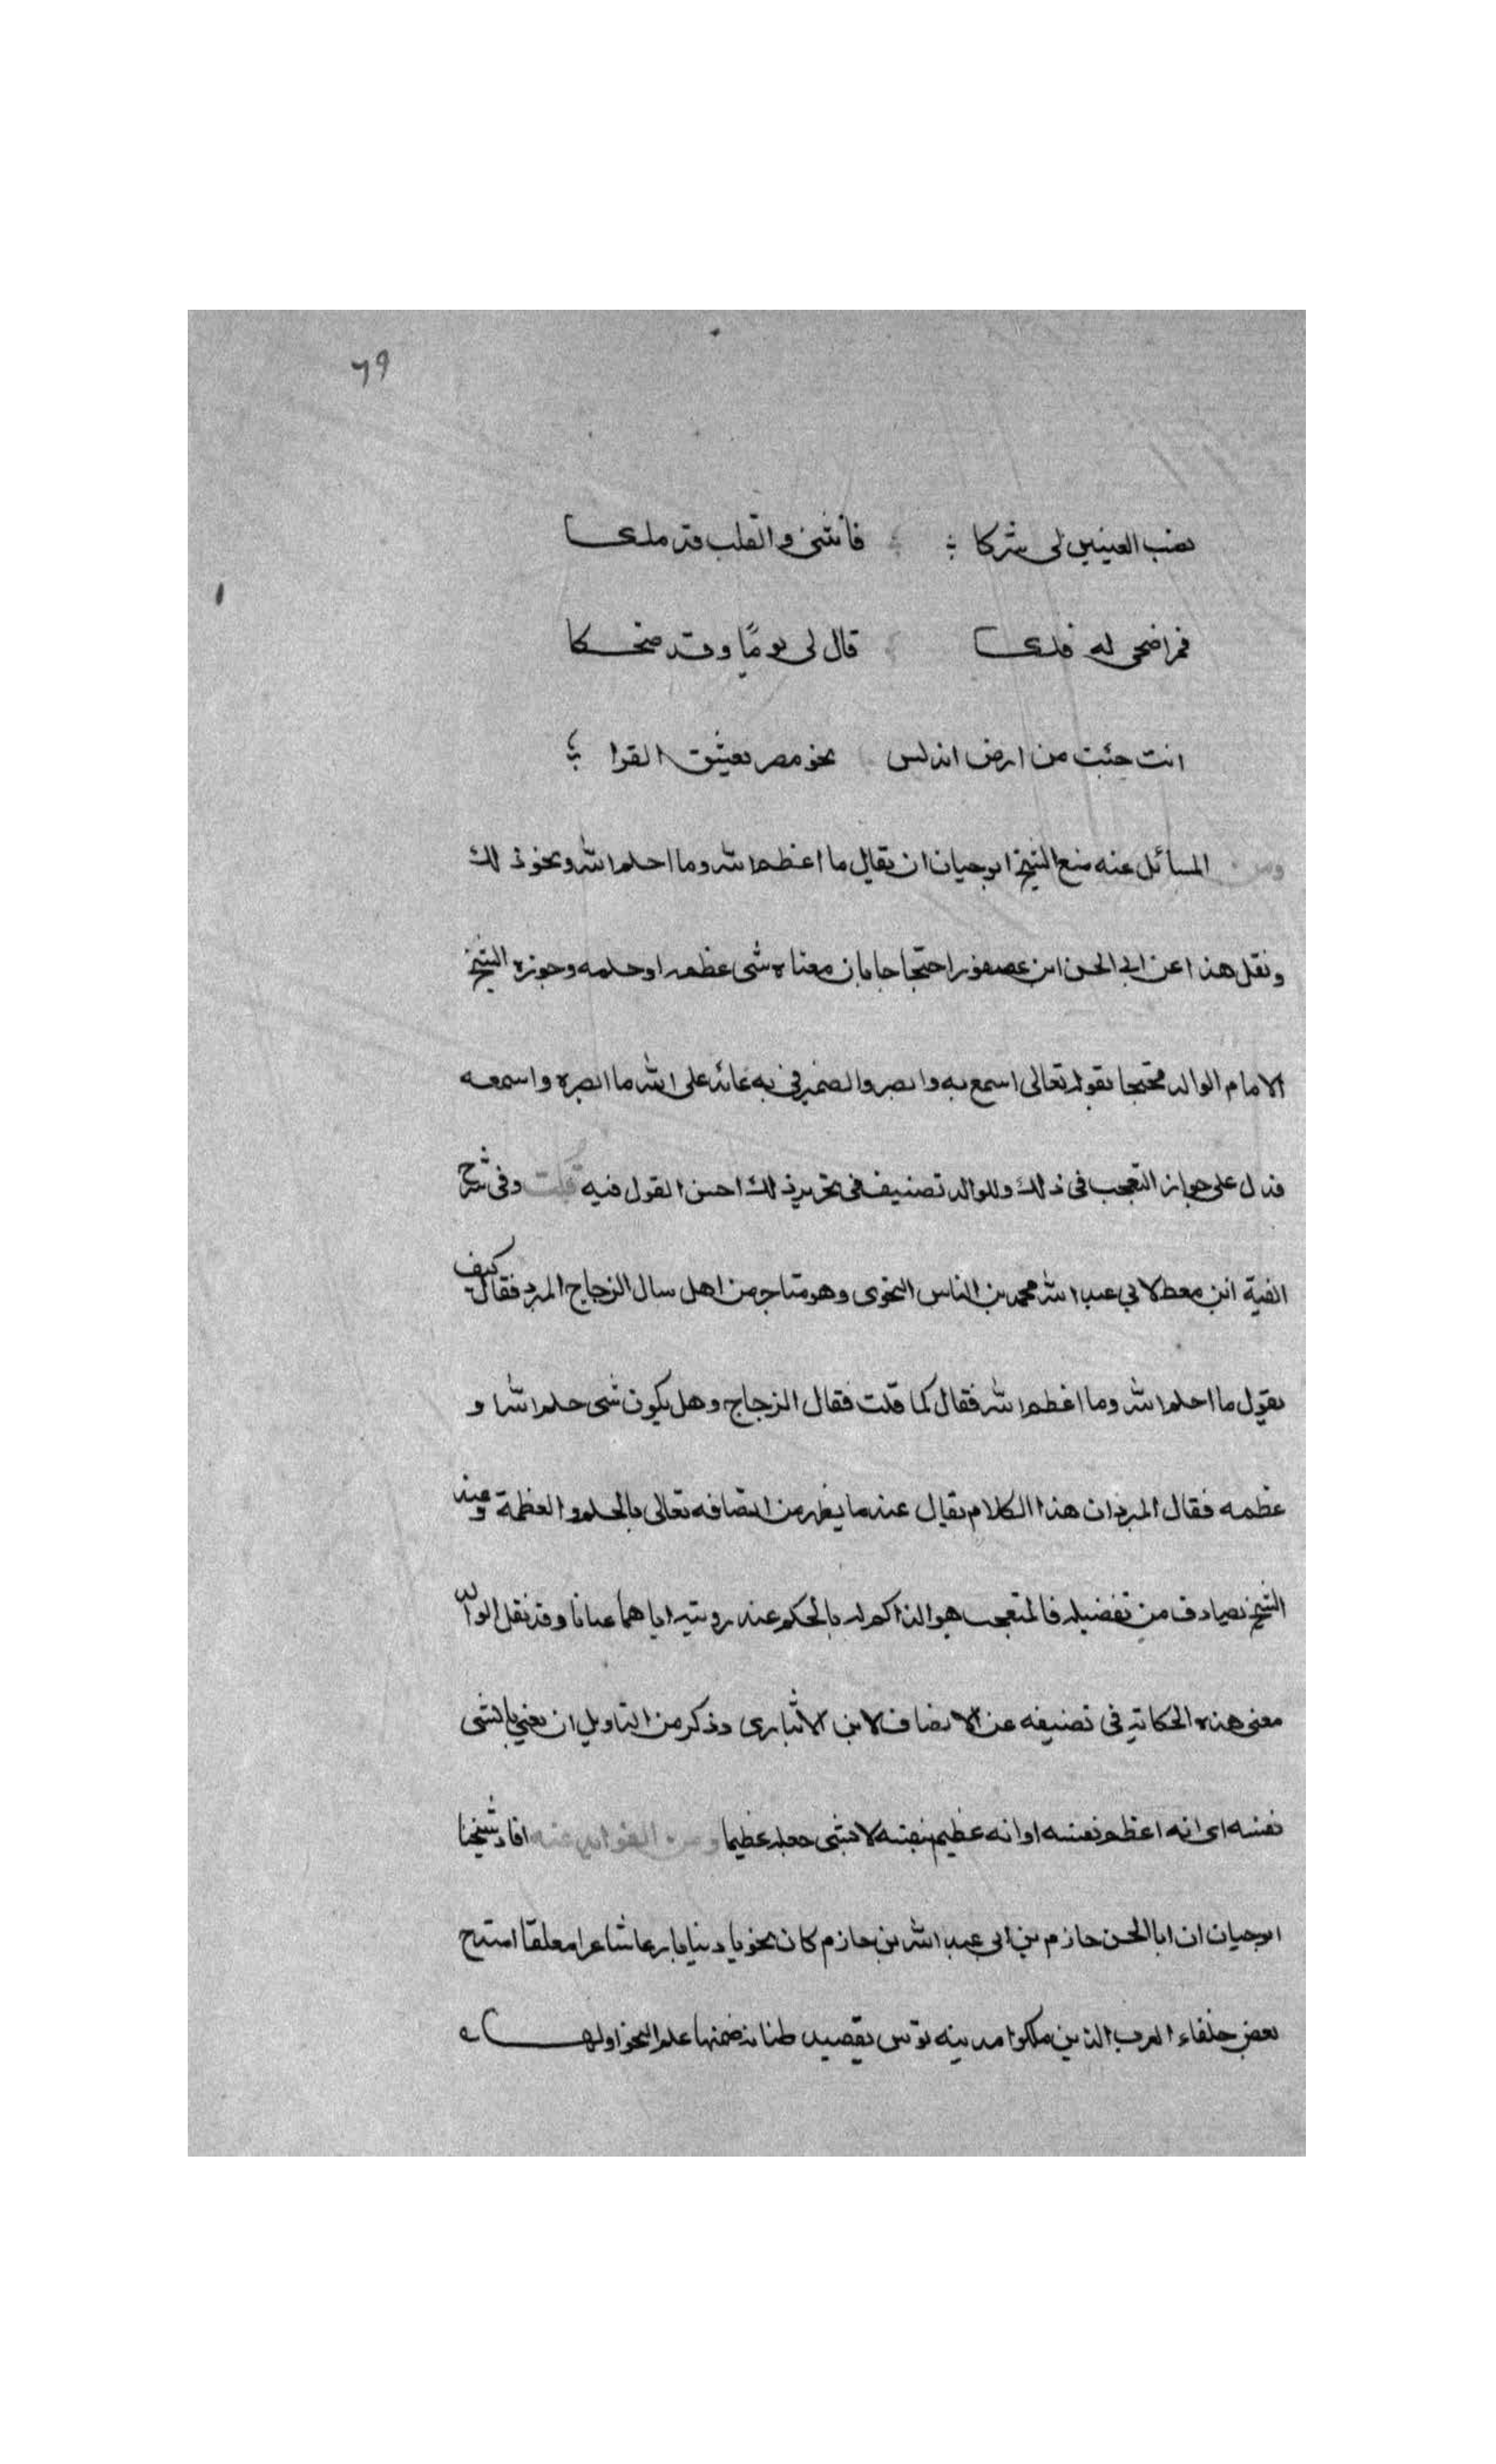 ٦٩
نصب العينين لى شركا فانثنى والقلب قد ملكا
قمر اضحى له فلكا قال لى يوما وقد ضحكا
انت جئت من ارض اندلس نحو مصر تعشق القمرا
ومن المسائل عنه منع الشيخ ابوحيان ان يقال ما اعظم الله وما احلم الله ونحو ذلك
ونقل هذا عن ابى الحسن ابن عصفور احتجاجا بان معناه شى عظمه او حلمه وجوزه الشيخ
الامام الوالد محتجا بقوله تعالى اسمع به وابصر والضمير فى به عائد على الله ما ابصره واسمعه
فدل على جواز التعجب فى ذلك وللوالد تصنيف فى تحرير ذلك احسن القول فيه قلت وفى شرح
الفية ابن معط لابي عبد الله محمد بن الناس النحوى وهو متاخر من اهل سال الزجاج المبرد فقال كيف
يقول ما احلم الله وما اعظم الله فقال كما قلت فقال الزجاج وهل يكون شى حلم الله او
عظمه فقال المبرد ان هذا الكلام يقال عند ما يظهر من اتصافه تعالى بالحلم والعظمة وعند
الشيخ يصادف من تفضيله فالمتعجب هو الذاكر له بالحكم عند رويته اياهما عيانا وقد نقل الوالد
معنى هذه الحكاية فى تصنيفه عن الانصاف لابن الانبارى وذكر من التاويل ان يعني بالشى
نفسه اى انه اعظم نفسه او انه عظيم بنفسه لا شى جعله عظيما ومن الفوائد عنه افاد شيخنا
ابوحيان ان ابا الحسن حازم بن ابى عبد الله بن حازم كان نحويا اديبا بارعا شاعرا مفلقا امتدح
بعض خلفاء العرب الذين ملكوا مدينه تونس بقصيده طنانه ضمنها علم النحو اولها